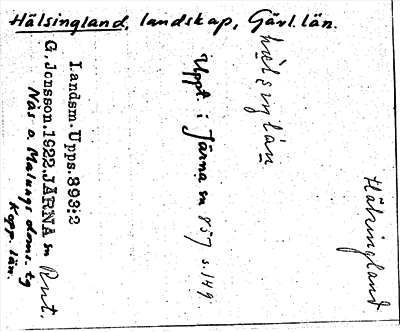 Hälsingland, landskap, Gävl. län.
Hälsingland
hælsiŋlán
Uppt. i Järna sn 857 s. 149.
Landsm. Upps. 893:2
G. Jonsson. 1922. JÄRNA sn
Nås o. Malungs doms. tg
Kopp. län.